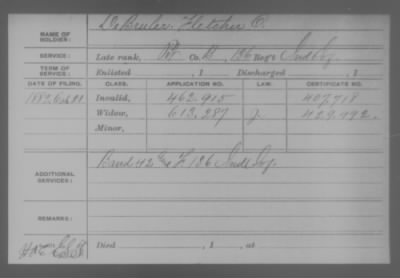 NAME OF SOLDIER: DeBruler, Fletcher C.
SERVICE: Late rank, Pvt Co. H, 136 Reg't Ind Inf.
TERM OF SERVICE: Enlisted , 1 Discharged , 1
DATE OF FILING. CLASS. APPLICATION NO. LAW. CERTIFICATE NO.
1882 Oct 21 Invalid, 462.915 407.718
Widow, 613,287 429,792
Minor,
ADDITIONAL SERVICES: Band 42 & F 136 Ind Inf.
REMARKS:
Died , 1 , at